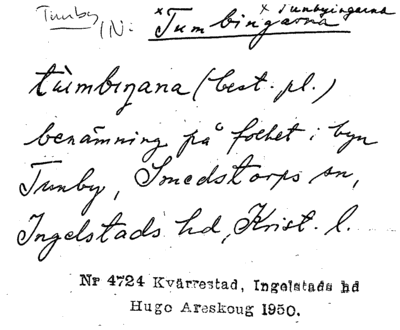 Tunby IN: ˣTumbingarna ˣTunbyingarna
tùmbiŋana (best. pl.)
benämning på folket i byn
Tunby, Smedstorps sn,
Ingelstads hd, Krist. l.
Nr 4724 Kvärrestad, Ingelstads hd
Hugo Areskoug 1950.